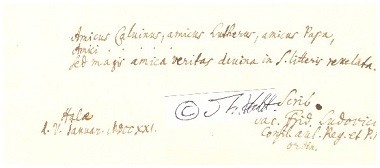 Amicus Calvinus, amicus Lutherus, amicus Papa,
Amici
sed magis amica veritas divina in S. litteris revelata.
Halæ
d. V. Januar. MDCCXXI.
©
Scrib.
Jac. Frid. Ludovici
Consil. aul. Reg. et P.
ordin.